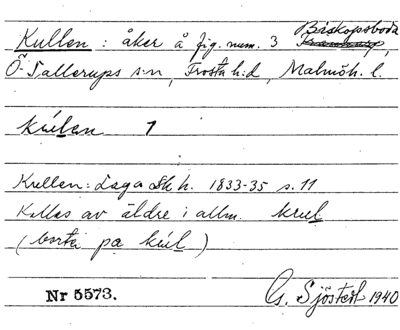 Kullen : åker å fig. num. 3 Biskopsboda
Ö. Sallerups s:n, Frosta h:d, Malmöh. l.
kúlen 1
Kullen: Laga Sk h. 1833-35 s. 11
Kallas av äldre i allm. krul
(borta pa kúl)
Nr 5573.
G. Sjöstedt 1940